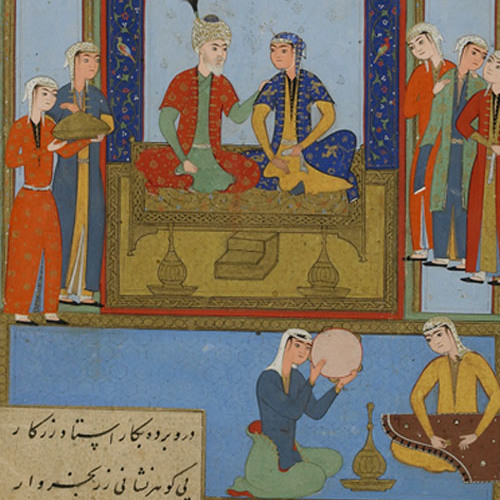 درو برده بکار استاد زرکار
پی گوهرنشانی زر بخروار